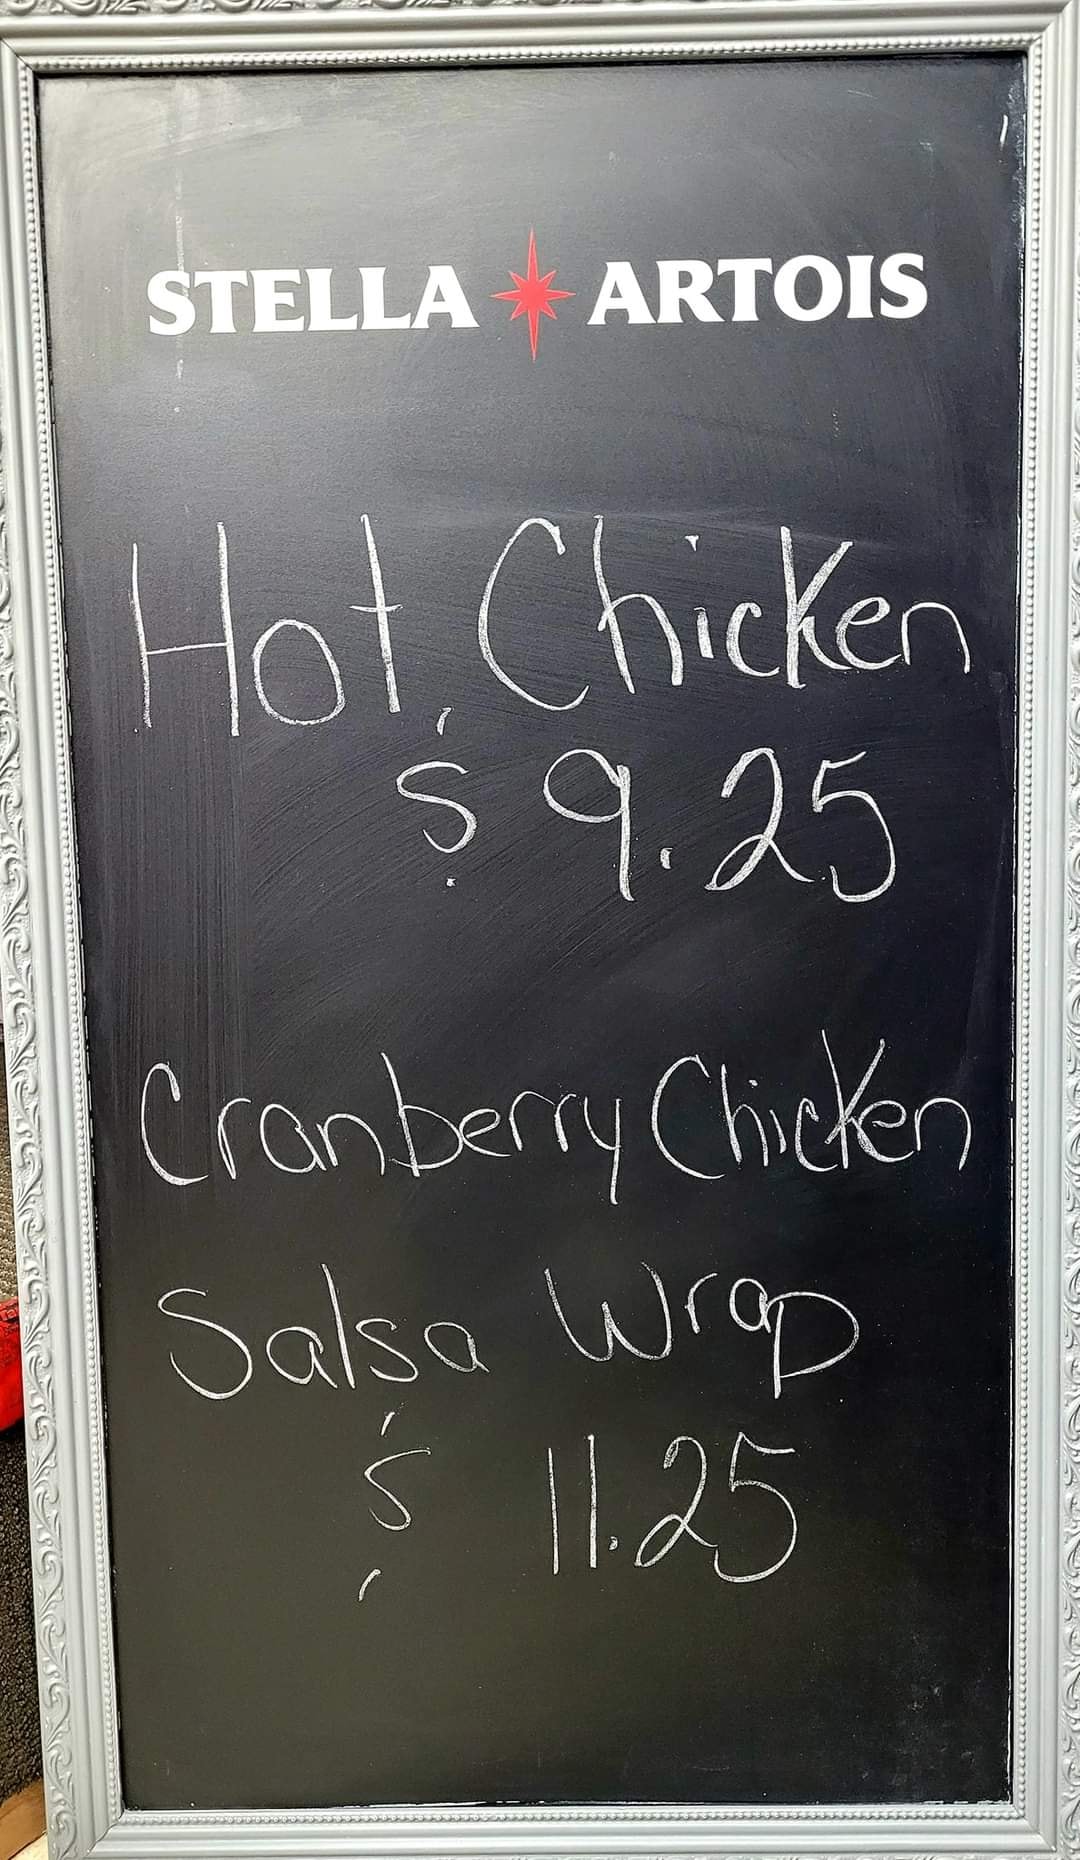 STELLA ARTOIS
Hot Chicken
$ 9.25
Cranberry Chicken
Salsa Wrap
$ 11.25